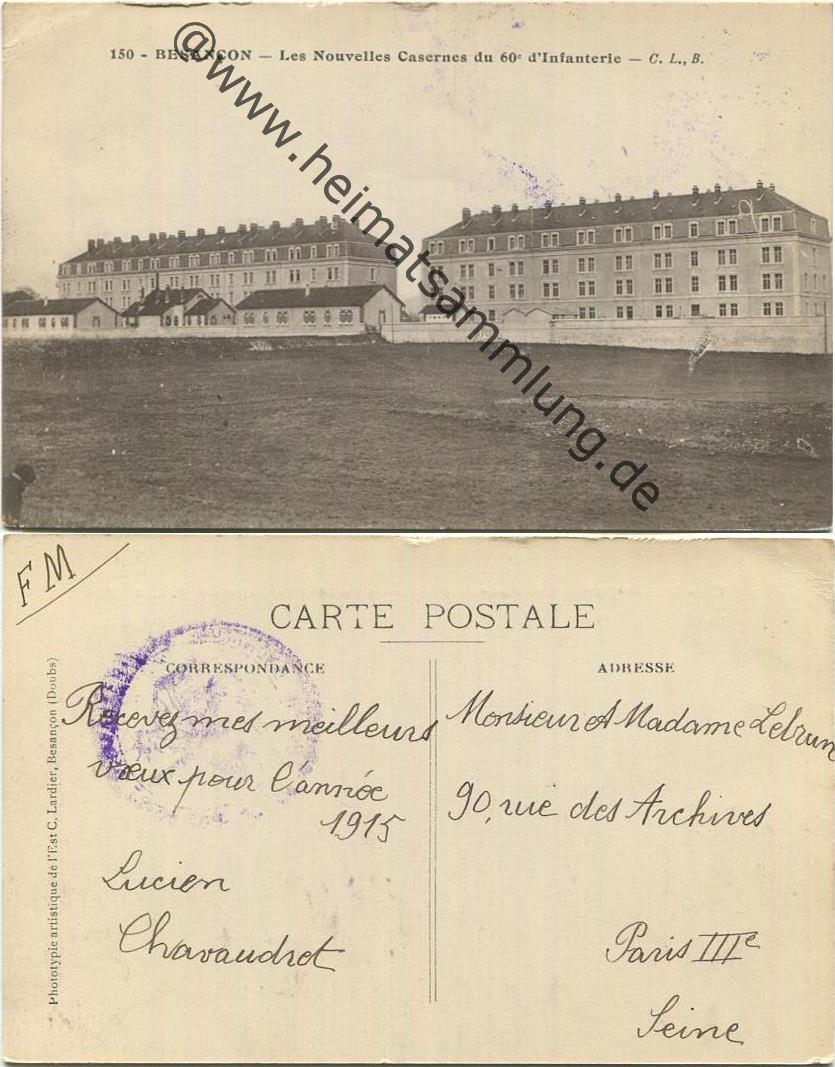 150 - BESANÇON — Les Nouvelles Casernes du 60e d'Infanterie — C. L., B.
@www.heimatsammlung.de
FM
CARTE POSTALE
CORRESPONDANCE
Recevez mes meilleurs
vœux pour l'année
1915
Lucien
Chavaudret
ADRESSE
Monsieur et Madame Lebrun
90, rue des Archives
Paris IIIe
Seine
Phototypie artistique de l'Est C. Lardier, Besançon (Doubs)